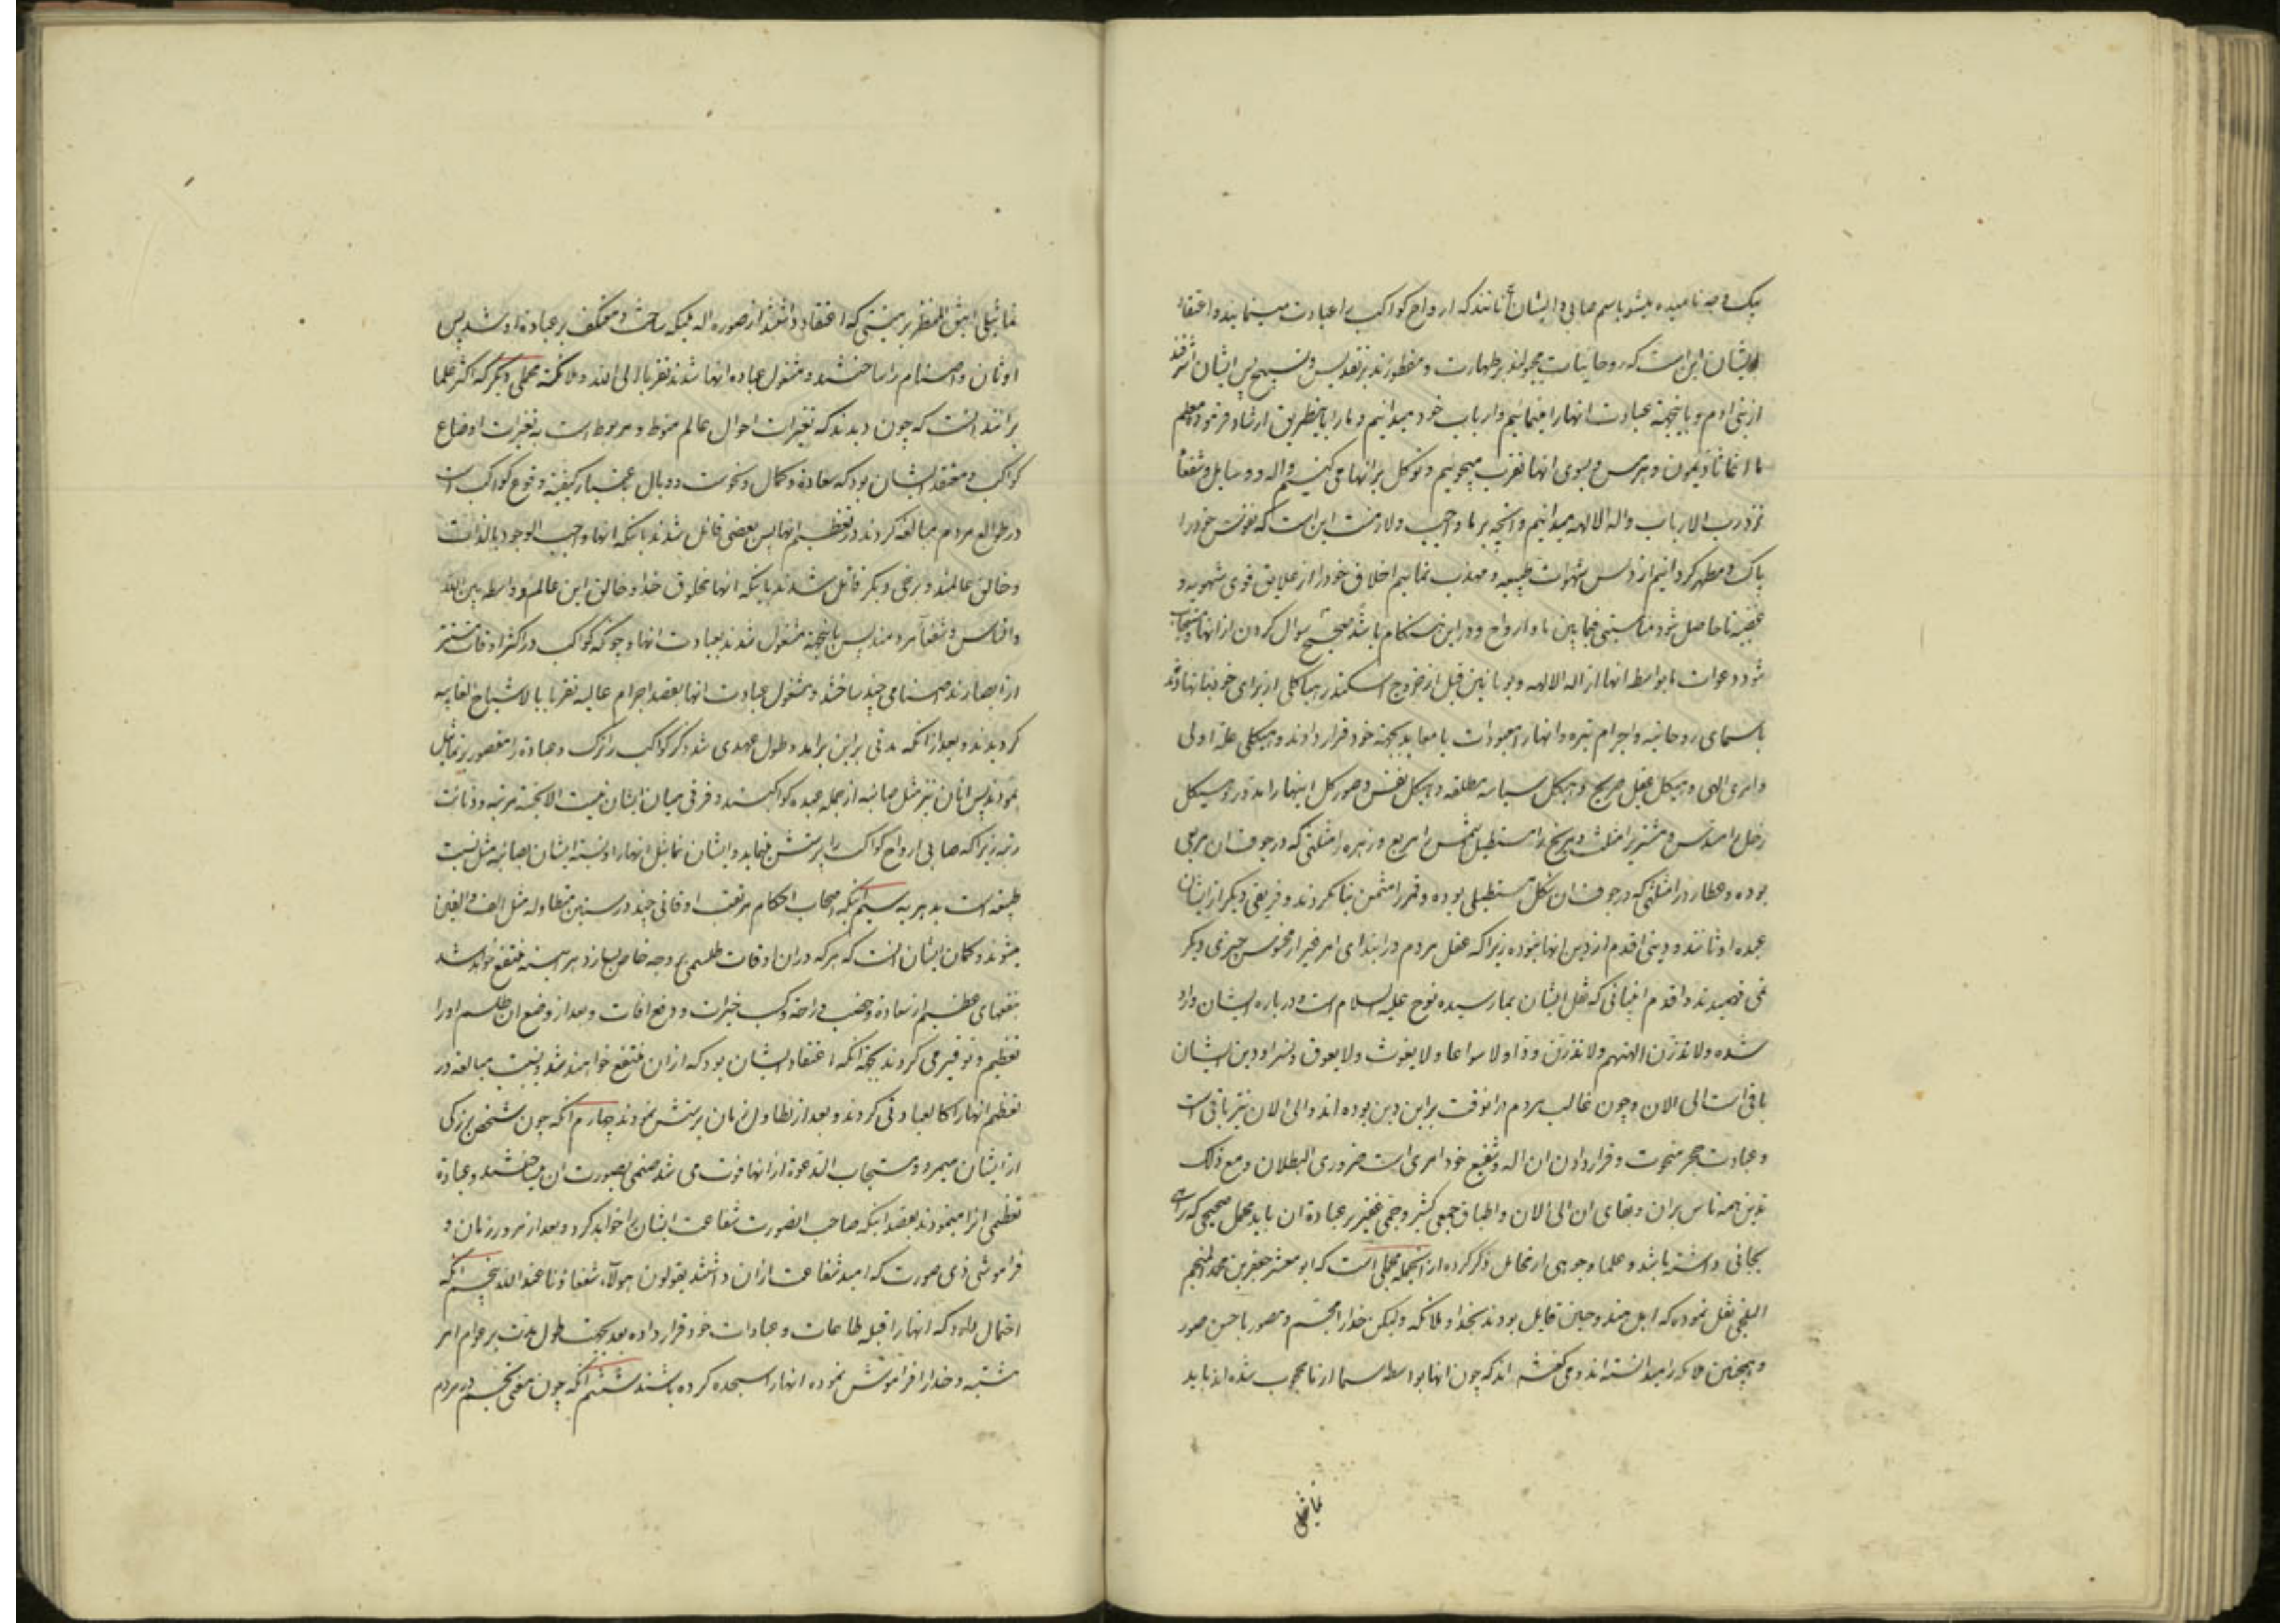 بیک وجه نامیده میشود باسم صابی و ایشان آنانند که ارواح کواکب را عبادت مینمایند و اعتقاد
ایشان این است که روحانیات مجبولند بر طهارت و مفطورند بر تقدیس و تسبیح پس ایشان اشرفند
از بنی ادم و باینجهة عبادت انها را مینمائیم و ارباب خود میدانیم و ما را باینطریق ارشاد فرموده معلم
ما اغاثاذیمون و هرمس و بسوی انها تقرب میجوییم و توکل بر انها می کنیم و اله و وسایل و شفعا
نزد رب الارباب و اله الالهه میدانیم و انچه بر ما واجب و لازمست این است که نفوس خود را
پاک و مطهر کردانیم از دنس شهوات طبیعه و مهذب نمائیم اخلاق خود را از علایق قوی شهویه و
غضبیه تا حاصل شود مناسبتی فیما بین ما و ارواح و در این هنکام باشد صحیح سوال کردن از انها و مستجاب
شود دعوات ما بواسطه انها از اله الالهه و یونانیین قبل از خروج اسکندر هیاکلی از برای خود بنا نهادند
باسمای روحانیه و اجرام نیره و انها را معبودات یا معابد بجهة خود قرار دادند و هیکلی علة اولی
و امری الهی و هیکل عقل صریح و هیکل سیاسه مطلقه و هیکل نفس و صور کل اینها را مدور و هیکل
زحل را مسدس و مشتری را مثلث و مریخ را مستطیل شمس را مربع و زهره را مثلثی که در جوف ان مربعی
بوده و عطارد را مثلثی که در جوف ان شکل مستطیلی بوده و قمر را مثمن بنا کردند و فریقی دیکر از ایشان
عبده اوثانند و دینی اقدم از دین انها نبوده زیرا که عقل مردم در ابتدای امر غیر از محسوس چیزی دیکر
نمی فهمیدند و اقدم انبیائی که نقل ایشان بما رسیده نوح علیه السلام است و درباره ایشان وارد
شده و لا تذرن الهتهم و لا تذرن ودا و لا سواعا و لا یغوث و لا یعوق و نسرا و دین ایشان
باقی است الی الان و چون غالب مردم در انوقت بر این دین بوده اند و الی الان نیز باقی است
و عبادت حجر منحوت و قرار دادن ان اله و شفیع خود امری است ضروری البطلان و مع ذلک
تدین همه ناس بران و بقای ان الی الان و اطباق جمعی کثیر و جمی غفیر بر عبادة ان باید محمل صحیحی که راهی
بجائی داشته باشد و علما وجوهی از محامل ذکر کرده از انجمله محملی است که ابو معشر جعفر بن محمد المنجم
البلخی نقل نموده که اهل هند و چین قایل بودند بخدا و ملائکه ولیکن خدا را مجسم و مصور باحسن صور
و همچنین ملائکه را میدانسته اند و می کفته اند که چون انها بواسطه سما از ما محجوب شده اند باید
تماثیلی
تماثیلی انیق المنظر بر هیئتی که اعتقاد داشتند از صوره اله و ملائکه ساخت و معتکف بر عبادة او شد پس
اوثان و اصنام را ساختند و مشغول عباده انها شدند تقربا الی الله و ملائکته محملی دیکر که اکثر علما
برانند انست که چون دیدند که تغیرات احوال عالم منوط و مربوط است به تغیرات اوضاع
کواکب و معتقد ایشان بود که سعادة و کمال و نحوست و وبال باعتبار کیفیة وقوع کواکب است
در طوالع مردم مبالغه کردند در تعظیم انها پس بعضی قائل شدند باینکه انها واجب الوجود بالذات
و خالق عالمند و برخی دیکر قائل شدند باینکه انها مخلوق خدا و خالق این عالم و واسطه بین الله
و الناس و شفعاء مردمند پس باینجهة مشغول شدند بعبادت انها و چونکه کواکب در اکثر اوقات مستتر
از ابصارند صنامی چند ساختند و مشغول عبادت انها بقصد اجرام عالیه تقربا بالاشباح الغایبه
کردیدند و بعد از انکه مدتی بر این برامد و طول عهدی شد ذکر کواکب را ترک و عبادة را مقصور بر تماثیل
نمودند پس انان نیز مثل صابئه از جمله عبده کواکبند و فرقی میان ایشان نیست الا بحسب مرتبه و دنائت
رتبه زیرا که صابی ارواح کواکب را پرستش مینماید و ایشان تماثیل انها را و نسبة ایشان بصابئه مثل نسبت
طبیعه است بدهریه سیم انکه اصحاب احکام مرتقب اوقاتی چند در سنین متطاوله مثل الف و الفین
میشوند و کمان ایشان انست که هر که در ان اوقات طلسمی بر وجه خاص بسازد هر اینه منتفع خواهد شد
بنفعهای عظیم از سعادة و خصب و راحة و کسب خیرات و دفع افات و بعد از وضع ان طلسم او را
تعظیم و توقیر می کردند بجهة انکه اعتقاد ایشان بود که از ان منتفع خواهند شد و نهایت مبالغه در
تعظیم انها را کالعبادتی کردند و بعد از تطاول زمان پرستش نمودند چهارم انکه چون شخص بزرکی
از ایشان میمرد و مستجاب الدعوة از انها فوت می شد صنمی بصورت ان میساختند و عبادة
تعظیمی انرا مینمودند بقصد اینکه صاحب الصورت شفاعت ایشان را خواهد کرد و بعد از مرور زمان و
فراموشی ذی صورت که امید شفاعت از ان داشتند یقولون هولاء شفعاؤنا عند الله پنجم انکه
احتمال دارد که انها را قبله طاعات و عبادات خود قرار داده بعد بجهت طول مدت بر عوام امر
مشتبه و خدا را فراموش نموده انها را سجده کرده باشند ششم انکه چون معنی تجسم در مردم